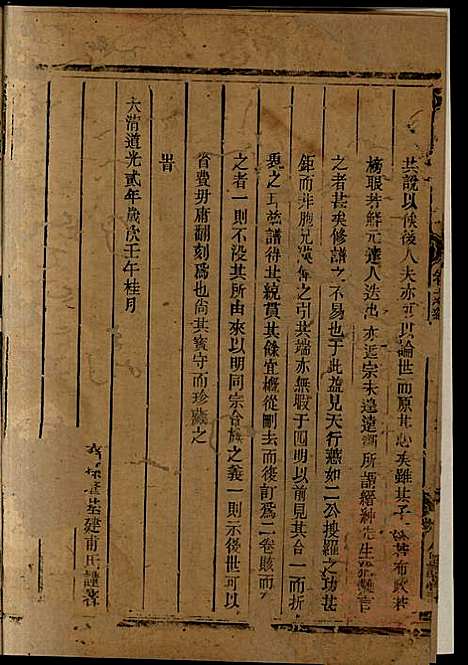 其說以俟後人夫亦可以論世而原其心矣雖其子
接眼者鮮元達人迭出亦近宗未遑遠所謂縉紳先生難言
之者甚矣修譜之不易也于此益見天行燕如二公搜羅之功甚
鉅而非胞兄之引其端亦無暇于四明以前見其合一而折
之耳茲譜得其統貫其餘宜概從刪去而後訂為二卷賅而
之者一則不沒其所由來以明同宗合族之義一則示後世可以
省費毋庸翻刻為也尚其寶守而珍藏之
旹
大清道光貳年歲次壬午桂月
基建甫氏謹